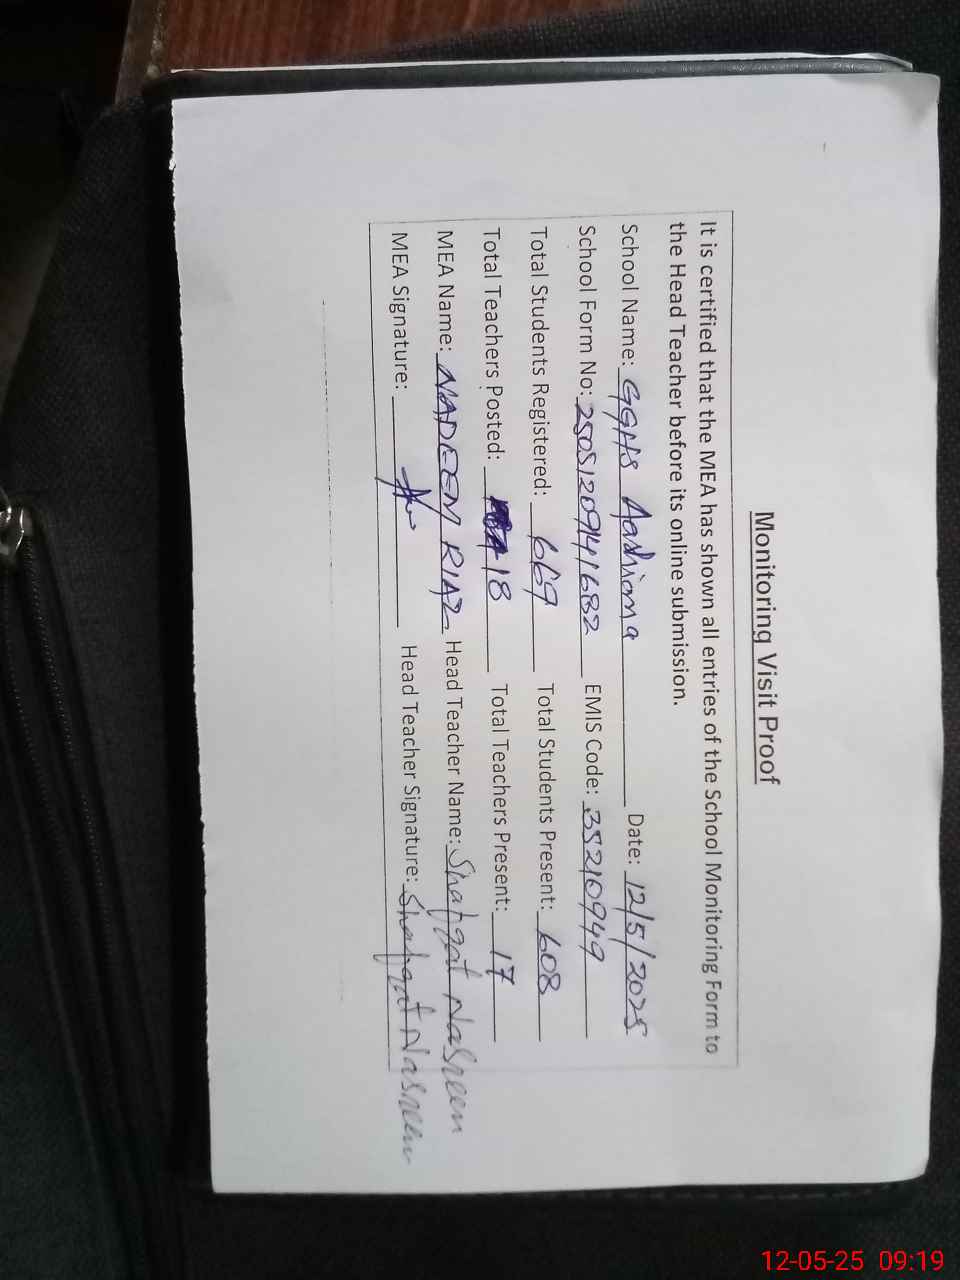 Monitoring Visit Proof
It is certified that the MEA has shown all entries of the School Monitoring Form to
the Head Teacher before its online submission.
School Name: GGHS Aashiana Date: 12/5/2025
School Form No: 250512091441682 EMIS Code: 35210949
Total Students Registered: 669 Total Students Present: 608
Total Teachers Posted: 18 Total Teachers Present: 17
MEA Name: NADEEM RIAZ Head Teacher Name: Shafqat Nasreen
MEA Signature: Head Teacher Signature: Shafqat Nasreen
12-05-25 09:19